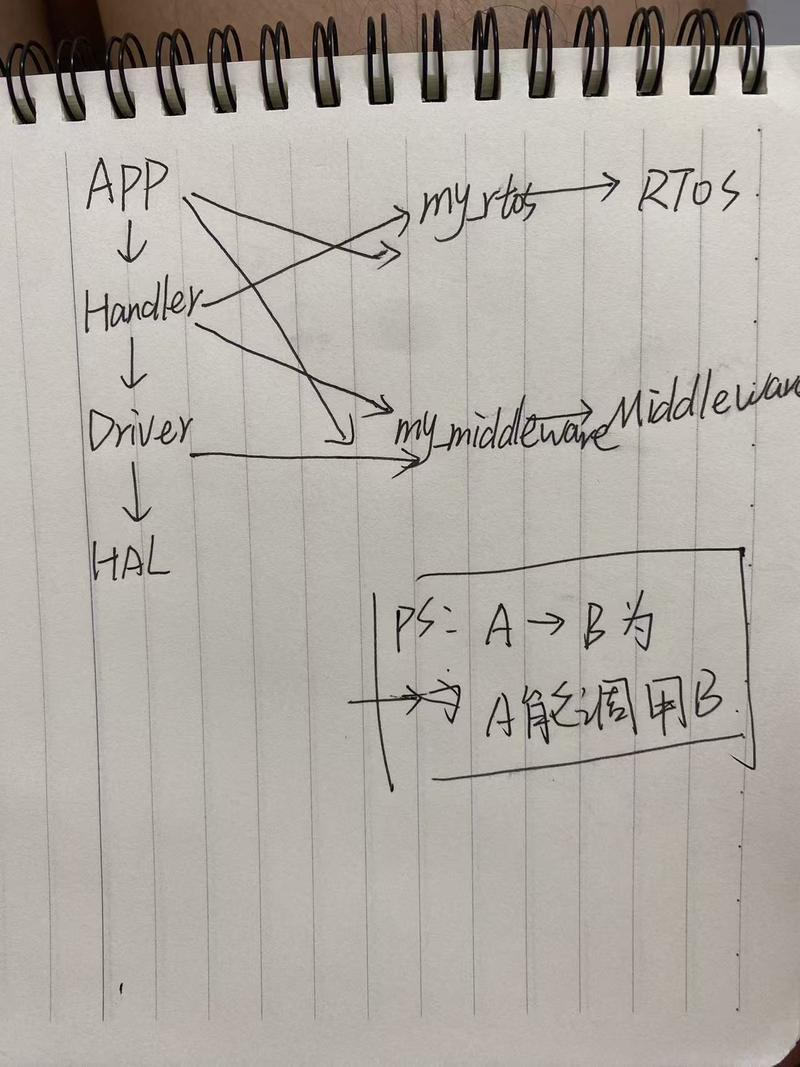 APP
my_rtos → RTOS
↓
Handler
↓
Driver
my_middleware → Middleware
↓
HAL
PS: A → B 为
A能调用B